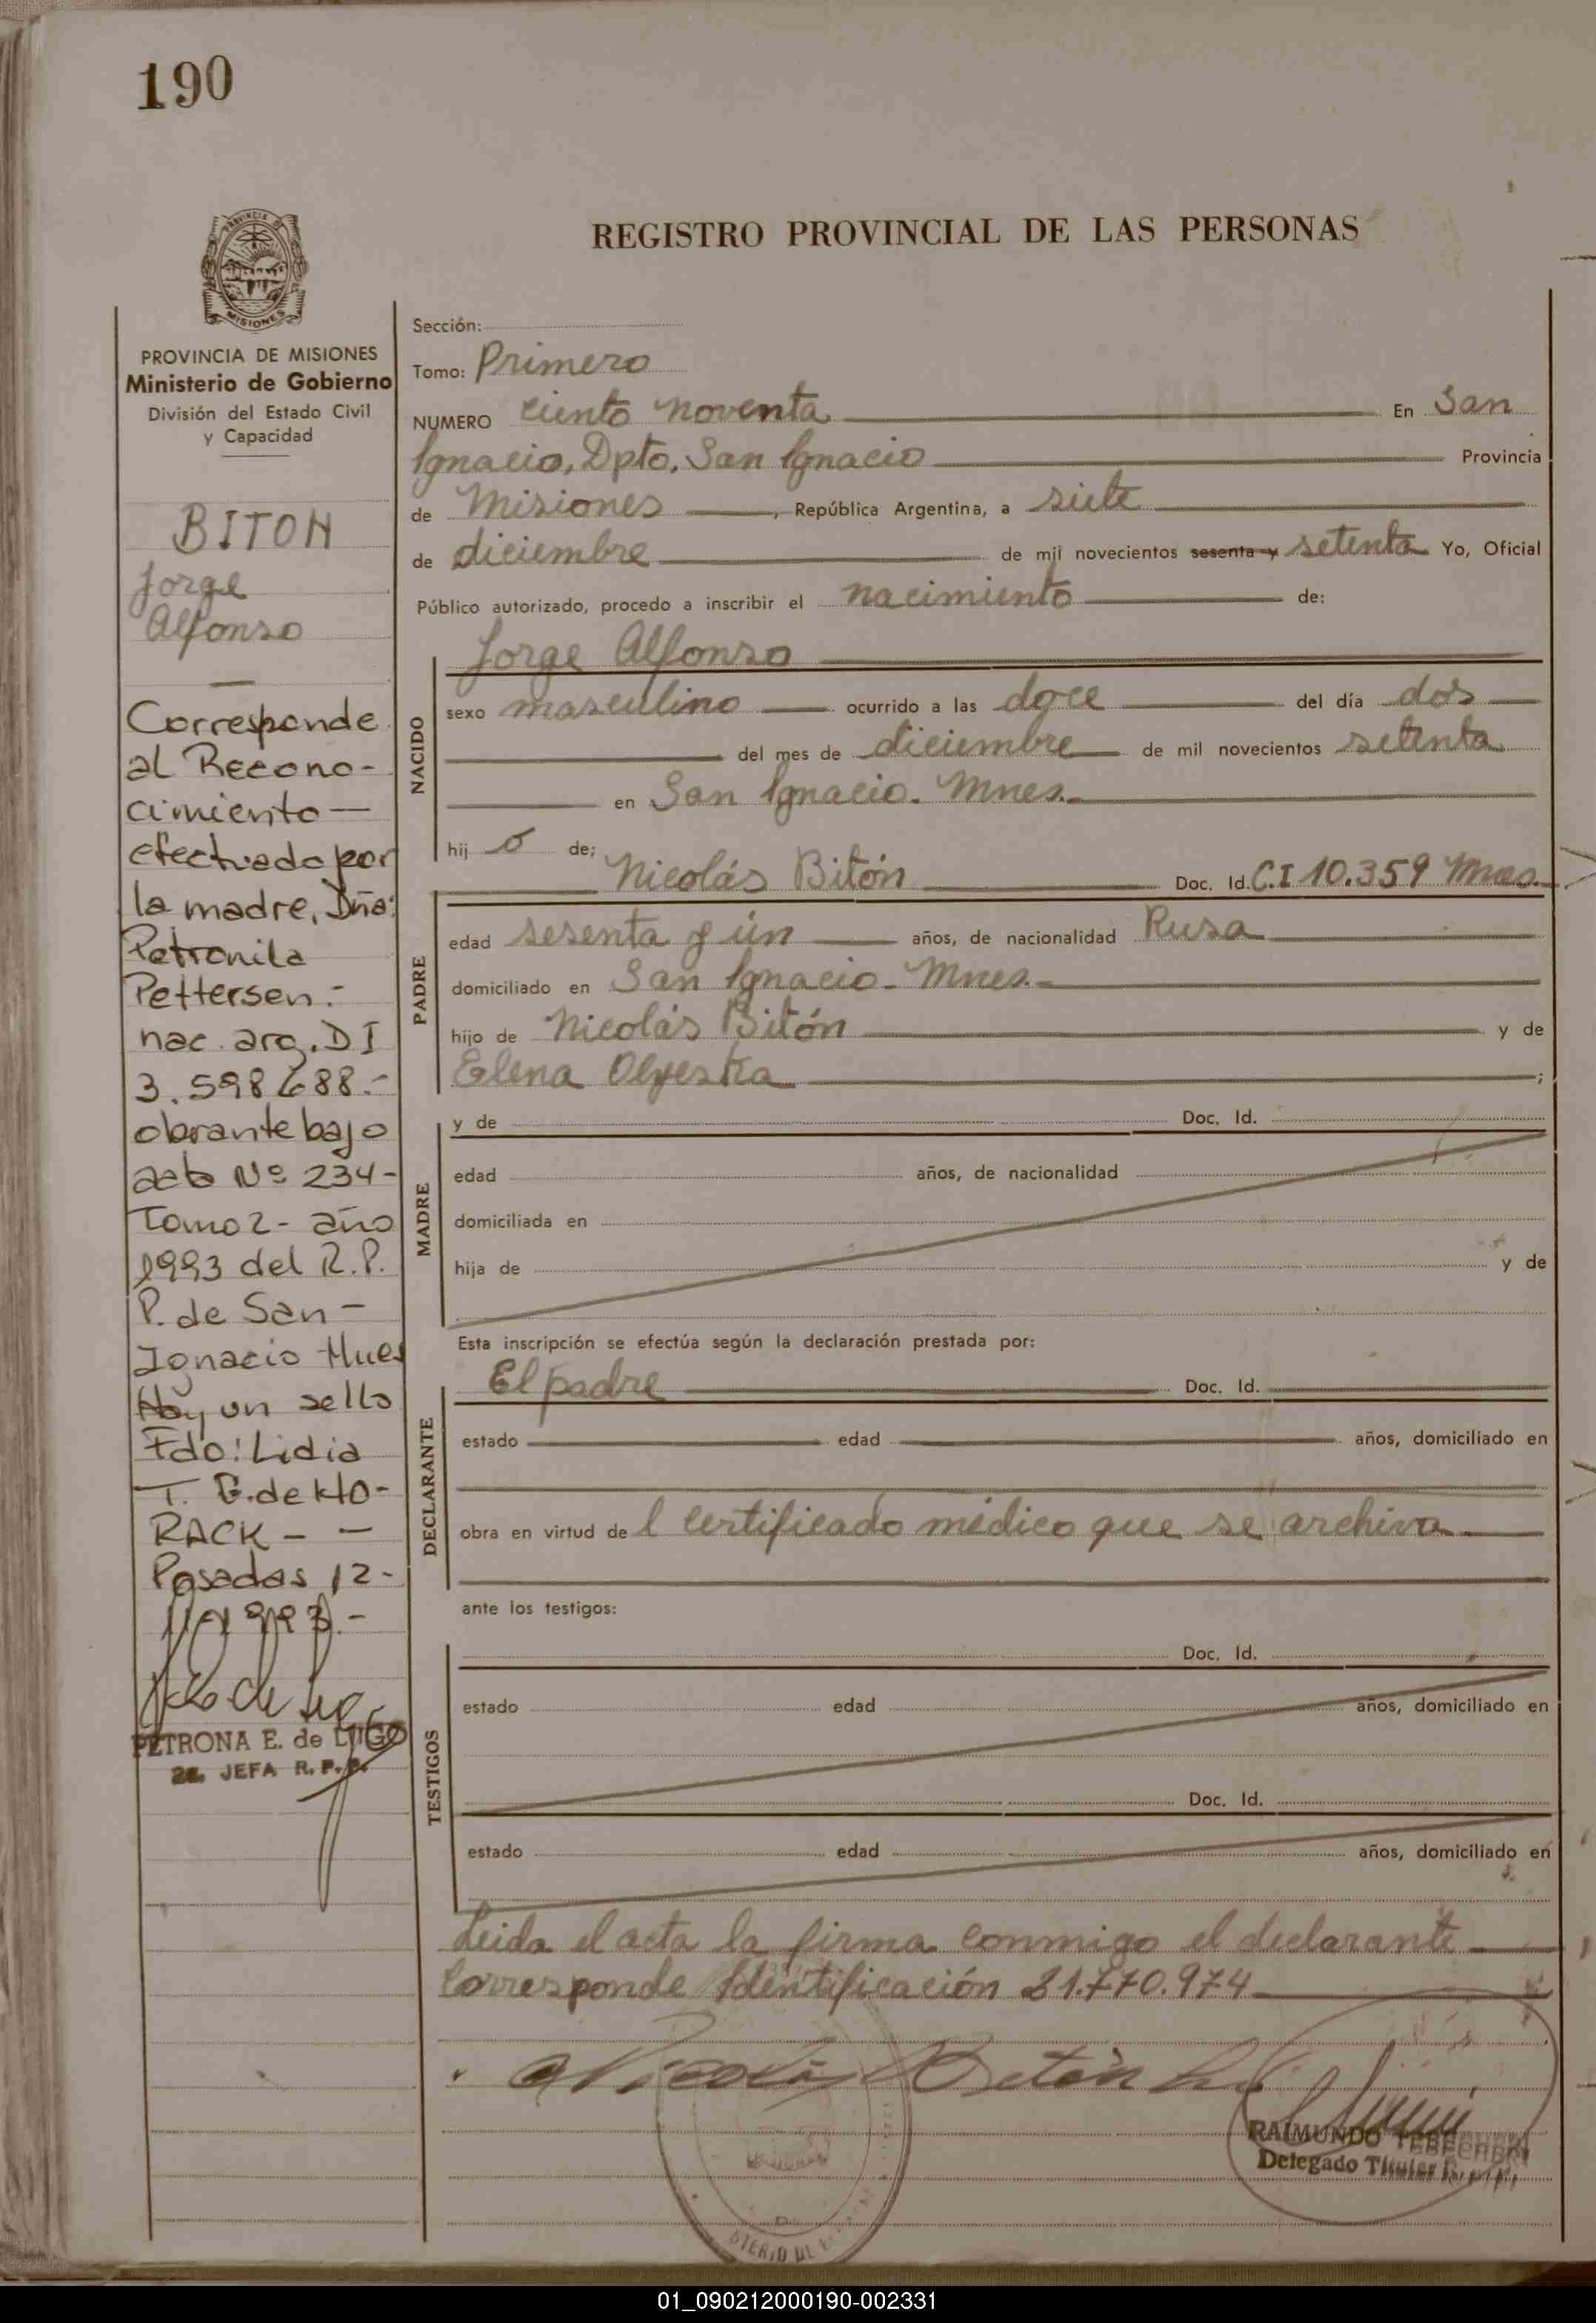 190
REGISTRO PROVINCIAL DE LAS PERSONAS
MISIONES
PROVINCIA DE MISIONES
Ministerio de Gobierno
División del Estado Civil
y Capacidad
BITON
Jorge
Alfonso
Corresponde
al Recono-
cimiento —
efectuado por
la madre, Dña:
Petronila
Pettersen.-
nac. arg. DI
3.598688.-
obrante bajo
acta Nº 234-
Tomo 2- año
1993 del R.P.
P. de San -
Ignacio Mnes
Hay un sello
Fdo: Lidia
T. G. de HO-
RACK - -
Posadas 12-
PETRONA E. de LUGO
JEFA R. P. P.
Sección:
Tomo: Primero
NUMERO ciento noventa En San
Ignacio, Dpto. San Ignacio Provincia
de Misiones, República Argentina, a siete
de diciembre de mil novecientos sesenta y setenta Yo, Oficial
Público autorizado, procedo a inscribir el nacimiento de:
Jorge Alfonso
NACIDO
sexo masculino ocurrido a las doce del día dos
del mes de diciembre de mil novecientos setenta
en San Ignacio. Mnes.
hij o de;
Nicolás Bitón Doc. Id. C.I 10.359 Mnes.
PADRE
edad sesenta y ún años, de nacionalidad Rusa
domiciliado en San Ignacio - Mnes.-
hijo de Nicolás Bitón y de
Elena ;
MADRE
y de Doc. Id.
edad años, de nacionalidad
domiciliada en
hija de y de
Esta inscripción se efectúa según la declaración prestada por:
DECLARANTE
El padre Doc. Id.
estado edad años, domiciliado en
obra en virtud de l certificado médico que se archiva.
ante los testigos:
TESTIGOS
Doc. Id.
estado edad años, domiciliado en
Doc. Id.
estado edad años, domiciliado en
Leida el acta la firma conmigo el declarante
Corresponde Identificación 21.770.974
Nicolás Bitón
RAIMUNDO
Delegado Titular
01_090212000190-002331